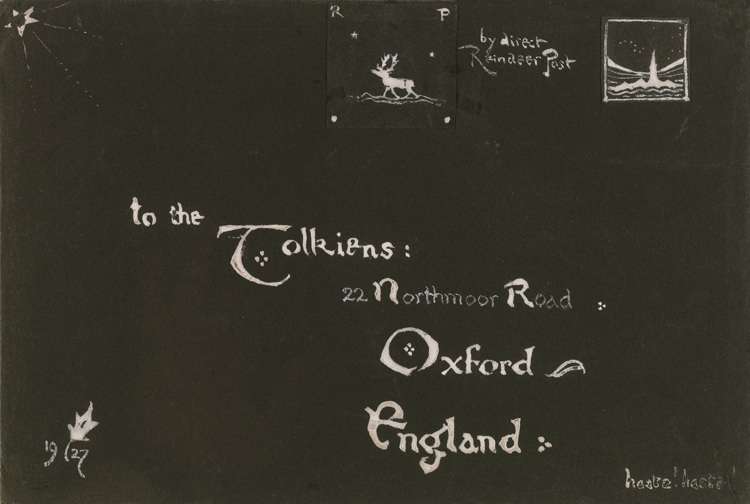 R P
by direct
Reindeer Post
to the
Tolkiens:
22 Northmoor Road
Oxford
England
1927
haste! haste!